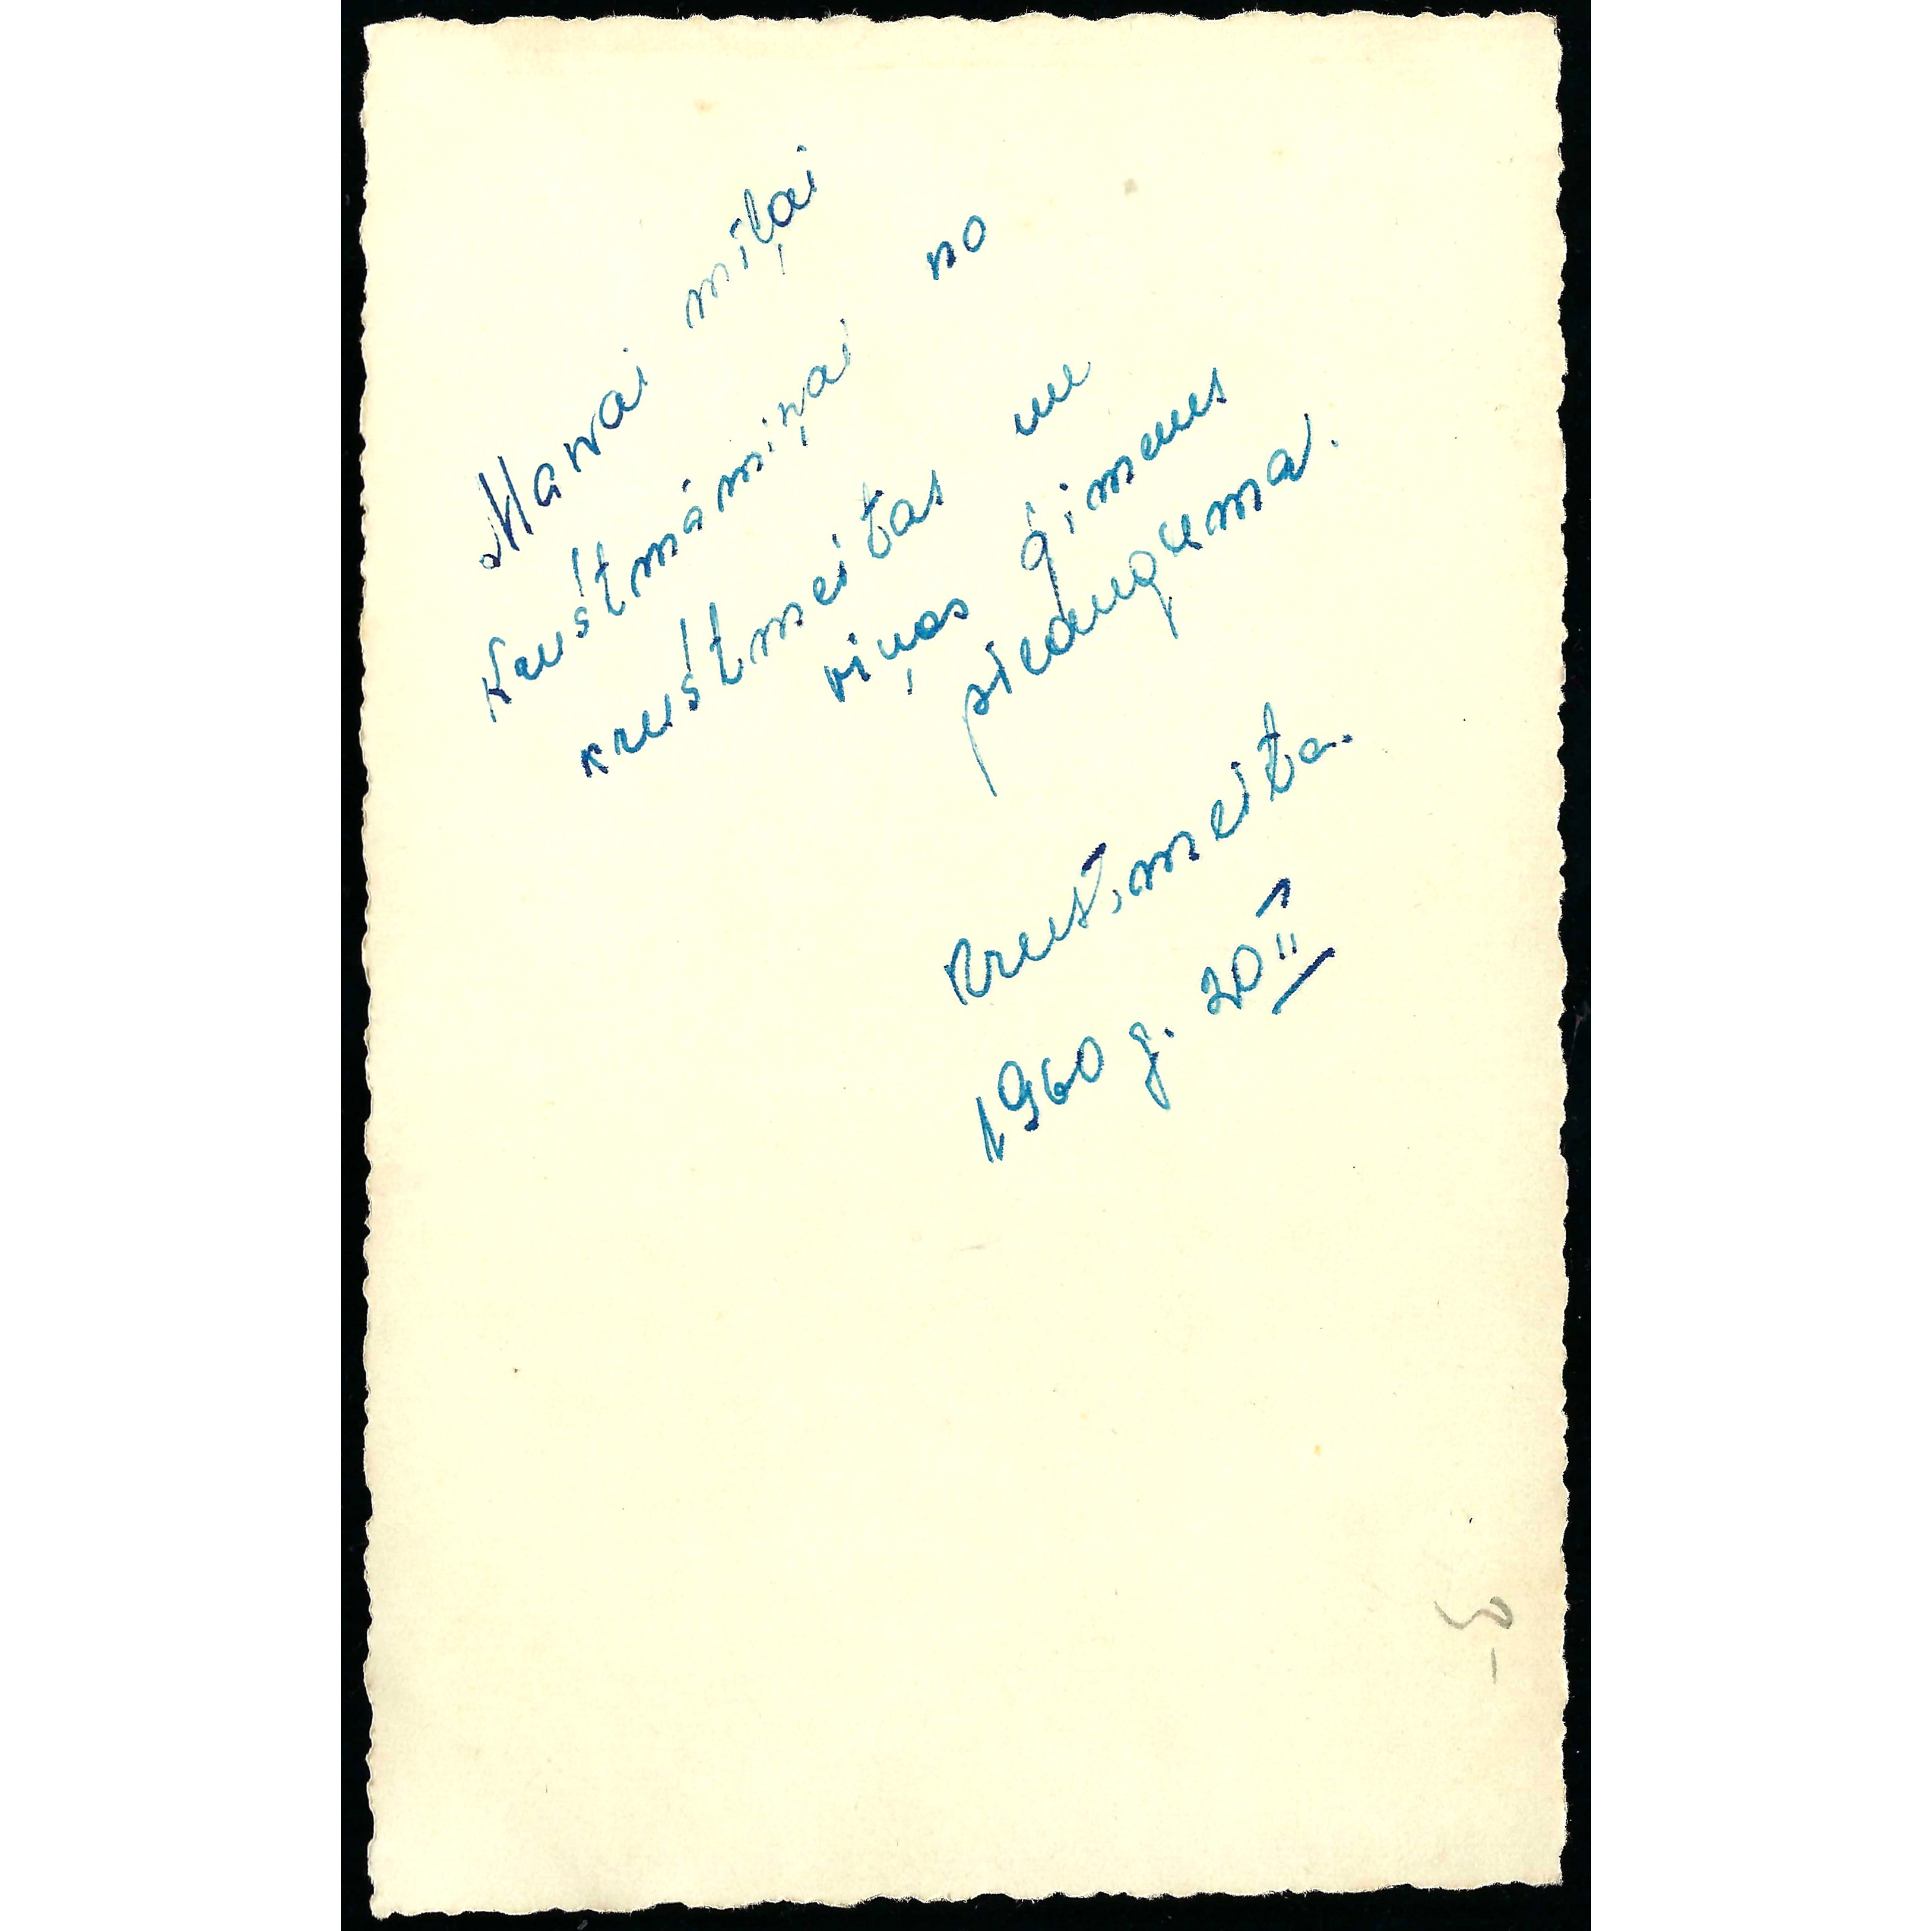 Manai mīļai
Krustmāmiņai no
krustmeitas un
viņas ģimenes
pieauguma.
Krustmeita.
1960 g. 20 II